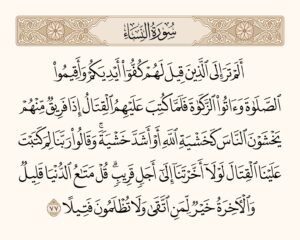 سُورَةُ النِّسَاءِ
أَلَمْ تَرَ إِلَى ٱلَّذِينَ قِيلَ لَهُمْ كُفُّوٓا۟ أَيْدِيَكُمْ وَأَقِيمُوا۟
ٱلصَّلَوٰةَ وَءَاتُوا۟ ٱلزَّكَوٰةَ فَلَمَّا كُتِبَ عَلَيْهِمُ ٱلْقِتَالُ إِذَا فَرِيقٌ مِّنْهُمْ
يَخْشَوْنَ ٱلنَّاسَ كَخَشْيَةِ ٱللَّهِ أَوْ أَشَدَّ خَشْيَةً ۚ وَقَالُوا۟ رَبَّنَا لِمَ كَتَبْتَ
عَلَيْنَا ٱلْقِتَالَ لَوْلَآ أَخَّرْتَنَآ إِلَىٰٓ أَجَلٍ قَرِيبٍ ۗ قُلْ مَتَٰعُ ٱلدُّنْيَا قَلِيلٌ
وَٱلْءَاخِرَةُ خَيْرٌ لِّمَنِ ٱتَّقَىٰ وَلَا تُظْلَمُونَ فَتِيلًا ٧٧